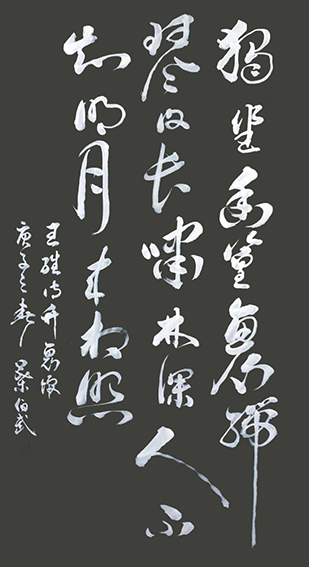 獨坐幽篁裏彈
琴復长嘯林深人不
知明月来相照
王維诗竹裏館
庚子之春 伯武